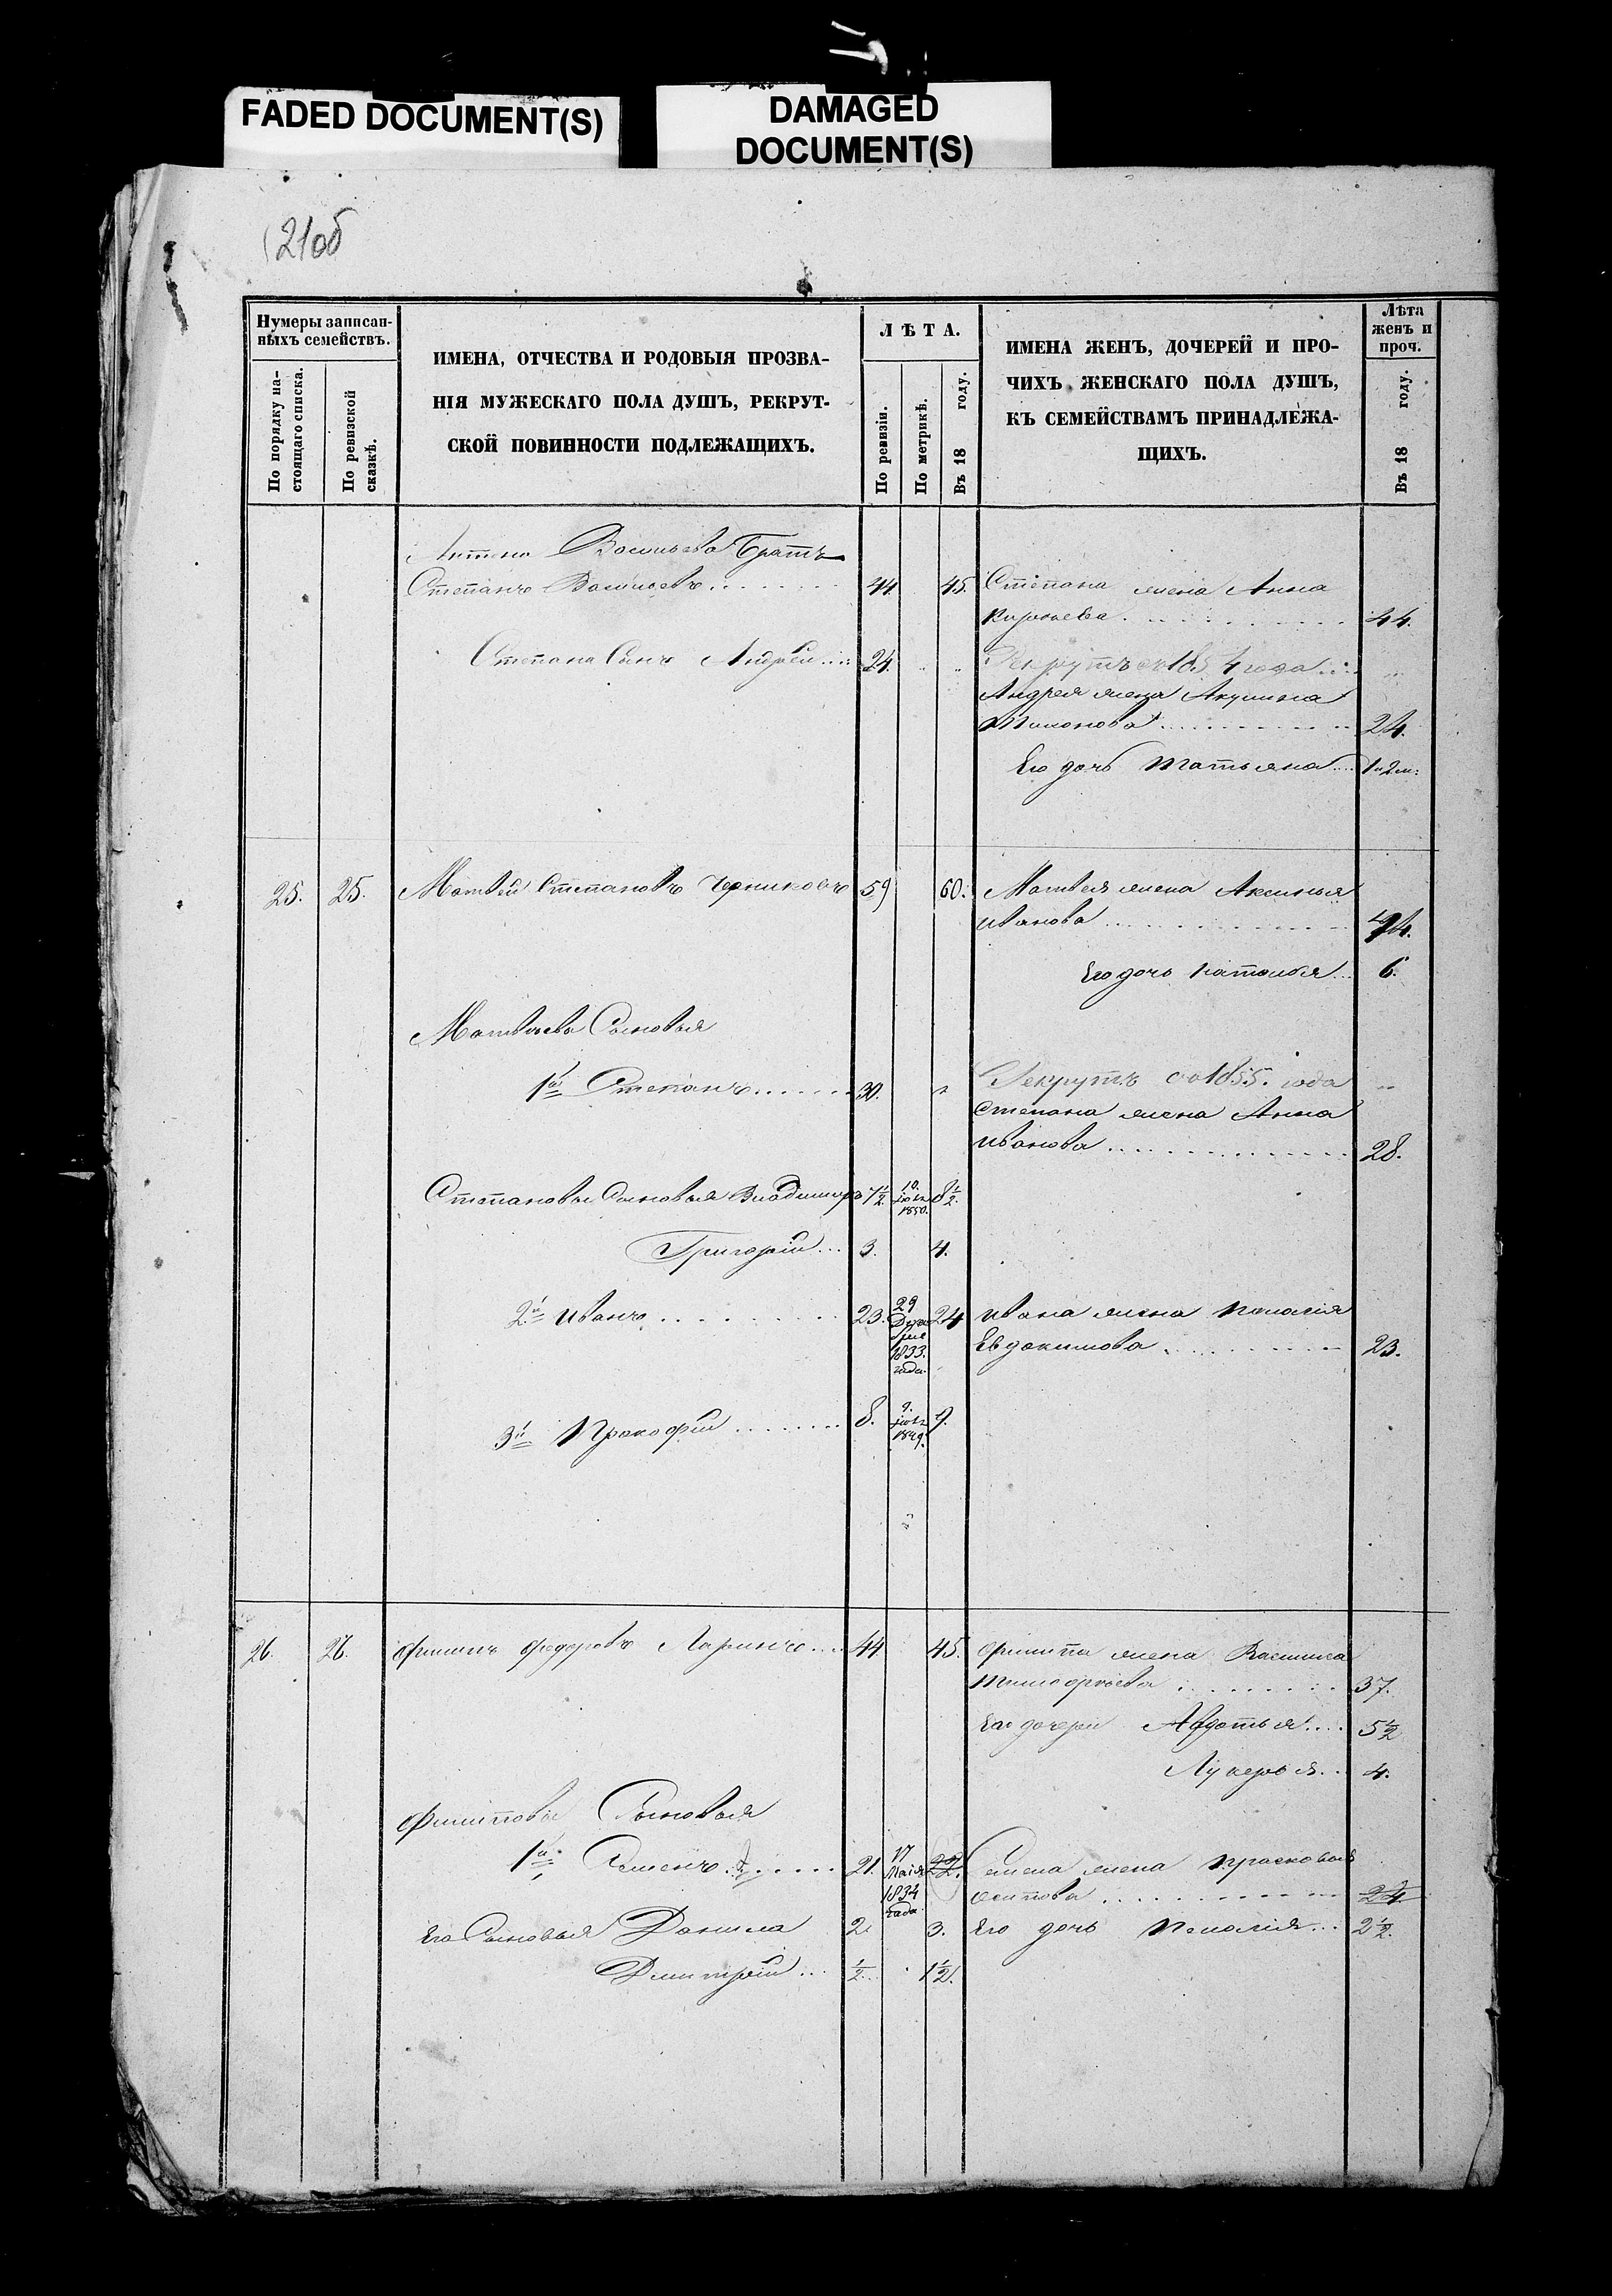 FADED DOCUMENT(S)
DAMAGED
DOCUMENT(S)
21об
Нумеры записан-
ныхъ семействъ.
По порядку на-
стоящаго списка.
По ревизской
сказкѣ.
ИМЕНА, ОТЧЕСТВА И РОДОВЫЯ ПРОЗВА-
НІЯ МУЖЕСКАГО ПОЛА ДУШЪ, РЕКРУТ-
СКОЙ ПОВИННОСТИ ПОДЛЕЖАЩИХЪ.
ЛѢТА.
По ревизіи.
По метрикѣ.
Въ 18 году.
ИМЕНА ЖЕНЪ, ДОЧЕРЕЙ И ПРО-
ЧИХЪ ЖЕНСКАГО ПОЛА ДУШЪ,
КЪ СЕМЕЙСТВАМЪ ПРИНАДЛЕЖА-
ЩИХЪ.
Лѣта
женъ и
проч.
Въ 18 году.
Васильева Братъ
Степанъ Васильевъ 44. 45. Степана жена Анна
44.
Степана Сынъ Андрей 24. Рекрутъ съ 1854 года
Андрея жена Акулина
Тихонова 24.
Его дочь Татьяна
25. 25. Матвей Степановъ Черниковъ 59 60. Матвея жена Аксинья
Иванова
Его дочь Наталья 6.
Матвѣевы Сыновья
1й Степанъ 30. Рекрутъ съ 1855. года
Степана жена Анна
Иванова 28.
Степановы Сыновья Владимиръ 7½. 10. іюля 1850. 8½.
Григорій 3. 4.
2й Иванъ 23. 29 Декабря 1833. года 24 Ивана жена Пелагія
Евдокимова 23.
3й Прокофій 8. 9. іюля 1849. 9.
26. 26. Филипъ Федоровъ Ларинъ 44 45. Филипа жена Василиса
Тимофеева 37.
Его дочери Авдотья 5½
Лукерья 4.
Филиповы Сыновья
1й Семенъ 21. 17 Маія 1834 года 22. Семена жена Прасковья
Осипова 24.
Его Сыновья Данила 2. 3. Его дочь Пелагія 2½.
Дмитрій ½ 1½.